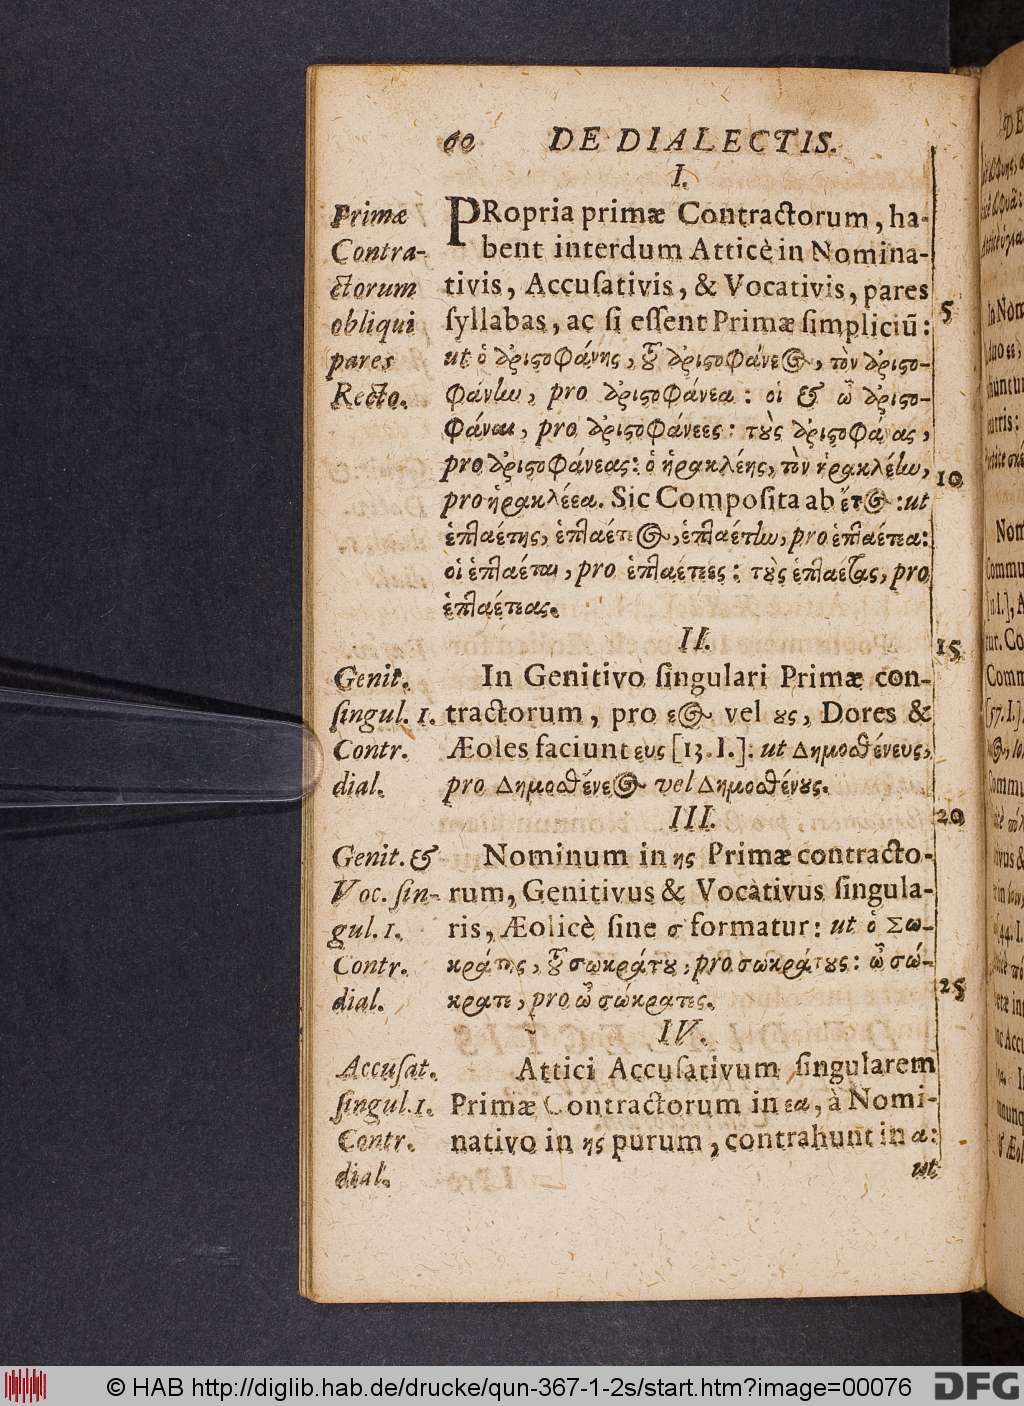 60 DE DIALECTIS.
I.
Primæ
Contra-
ctorum
obliqui
pares
Recto.
PRopria primæ Contractorum, ha-
bent interdum Atticè in Nomina-
tivis, Accuſativis, & Vocativis, pares
ſyllabas, ac ſi eſſent Primæ ſimpliciū:
ut ὁ ἀριϛοφάνης, ȣ͂ ἀριϛοφάνεος, τὸν ἀριϛο-
φάνην, pro ἀριϛοφάνεα: οἱ & ὦ ἀριϛο-
φάναι, pro ἀριϛοφάνεες: τȣ̀ς ἀριϛοφά ας,
pro ἀριϛοφάνεας: ὁ ἡρακλέης, τὸν ἡρακλέην,
pro ἡρακλέεα. Sic Compoſita ab ἔτος: ut
ἑπταέτης, ἑπταέτεος, ἑπταέτην, pro ἑπταέτεα:
οἱ ἑπταέται, pro ἑπταέτεες: τȣ̀ς ἑπταέτας, pro
ἑπταέτεας.
5
10
II.
15
Genit.
ſingul. 1.
Contr.
dial.
In Genitivo ſingulari Primæ con-
tractorum, pro εος vel ȣς, Dores &
Æoles faciunt ευς [13. I.]. ut Δημοσθένευς,
pro Δημοσθένεος vel Δημοσθένȣς.
III.
20
Genit. &
Voc. ſin-
gul. 1.
Contr.
dial.
Nominum in ης Primæ contracto-
rum, Genitivus & Vocativus ſingula-
ris, Æolicè ſine σ formatur: ut ὁ Σω-
κράτης, ȣ͂ σωκράτȣ, pro σωκράτȣς: ὦ σώ-
κρατε, pro ὦ σώκρατες.
25
IV.
Accuſat.
ſingul. 1.
Contr.
dial.
Attici Accuſativum ſingularem
Primæ Contractorum in εα, à Nomi-
nativo in ης purum, contrahunt in α:
ut
© HAB http://diglib.hab.de/drucke/qun-367-1-2s/start.htm?image=00076 DFG